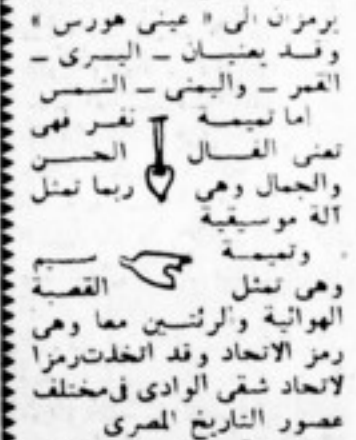 يرمزان الى « عينى هورس »
وقد يعنيان ـ اليسرى ـ
القمر ـ واليمنى ـ الشمس
اما تميمة نفر فهى
تعنى الفال الحسن
والجمال وهى ربما تمثل
آلة موسيقية
وتميمة سيم
وهى تمثل القصبة
الهوائية والرئتين معا وهى
رمز الاتحاد وقد اتخذت رمزا
لاتحاد شقى الوادى فى مختلف
عصور التاريخ المصرى